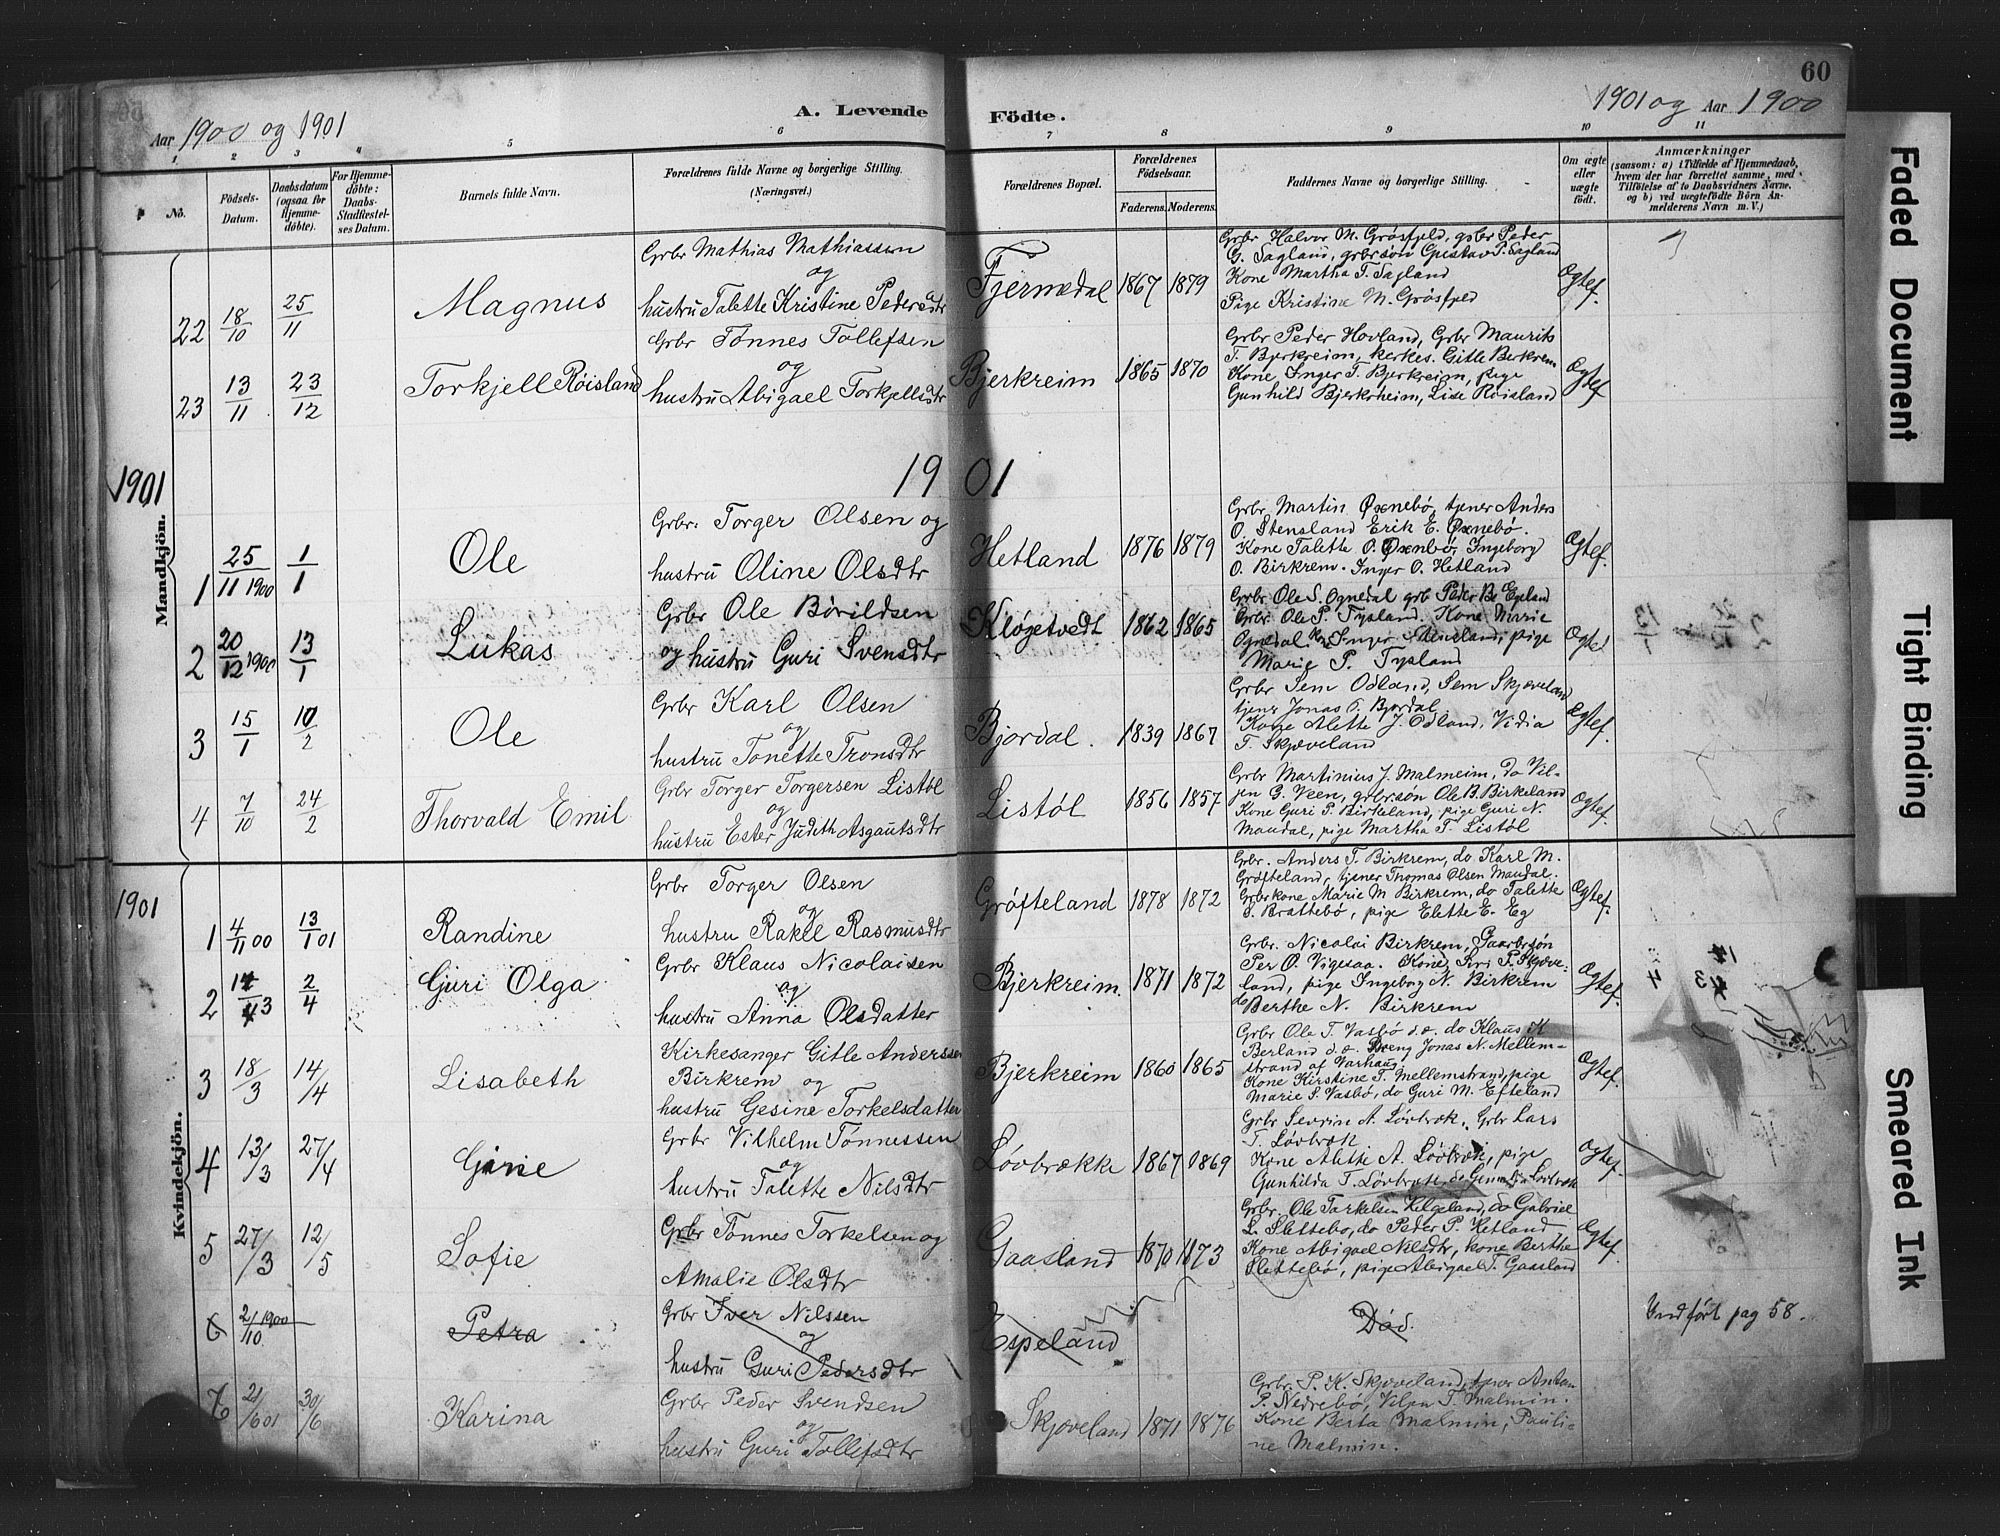 60
Aar 1900 og 1901
A. Levende Födte.
1901 og Aar 1900
1 2 3 4 5 6 7 8 9 10 11
No.
Födsels-Datum.
Daabsdatum (ogsaa for Hjemmedöbte).
For Hjemmedöbte: Daabs-Stadfæstelses Datum.
Barnets fulde Navn.
Forældrenes fulde Navne og borgerlige Stilling. (Næringsvei.)
Forældrenes Bopæl.
Forældrenes Födselsaar.
Faderens. Moderens.
Faddernes Navne og borgerlige Stilling.
Om ægte eller uægte födt.
Anmærkninger
(saasom: a) i Tilfælde af Hjemmedaab, hvem der har forrettet samme, med Tilföielse af to Daabsvidners Navne, og b) ved uægtefödte Börn Anmelderens Navn m. V.)
Mandkjön.
22 18/10 25/11 Magnus
Grbr Mathias Mathiassen
og
hustru Talette Kristine Pedersdtr
Fjermedal 1867 1879
Grbr Halvor M. Grøsfjeld, grbr Peder
G. Sagland, grbrsøn Gustav T. Sagland
Kone Martha T. Sagland
Pige Kristine M. Grøsfjeld
Ægtef.
23 13/11 23/12 Torkjell Røisland
Grbr Tønnes Tollefsen
og
hustru Abigael Torkjellsdtr
Bjerkreim 1865 1870
Grbr Peder Hovland, Grbr Maurits
T. Bjerkreim, kerkes. Gitle Berkrem
Kone Inger T. Bjerkreim, pige
Gunhild Bjerkrheim, Lise Røisland
Ægtef
1901
1901
1 25/11 1900 1/1 Ole
Grbr. Torger Olsen og
hustru Oline Olsdtr
Hetland 1876 1879
Grbr Martin Øxnebø, tjener Anders
O. Stensland Erik E. Øxnebø.
Kone Talette O. Øxnebø, Ingeborg
O. Birkrem. Inger O. Hetland
Ægtef.
2 20/12 1900 13/1 Lukas
Grbr Ole Børildsen
og hustru Guri Svensdtr
Kløgetvedt 1862 1865
Grbr Ole S. Ognedal grb Peder B. Egeland
Grbr. Ole P. Tysland. Kone Marie
Ognedal, Inger Stensland, pige
Marie P. Tysland
Ægtef
3 15/1 10/2 Ole
Grbr Karl Olsen
og
hustru Tonette Tronsdtr
Bjordal. 1839 1867
Grbr Sem Odland, Sem Skjæveland
tjens Jonas T. Bjordal
Kone Alette J. Odland, Vidia
T. Skjæveland
Ægtef.
4 7/10 24/2 Thorvald Emil
Grbr Torger Torgersen Listøl
og
hustru Ester Judith Asgautsdtr
Listøl 1856 1857
Grbr Martinius J. Malmeim, do Vil-
jen G. Veen, grbrsøn Ole B. Birkeland
Kone Guri P. Birkeland, pige Guri N.
Maudal, pige Martha T. Listøl
Ægtef.
1901
Kvindekjön.
1 4/11 00 13/1 01 Randine
Grbr Torger Olsen
og
hustru Rakel Rasmusdtr
Grøfteland 1878 1872
Grbr. Anders T. Birkrem, do Karl M.
Grøfteland, tjener Thomas Olsen Maudal.
Grbrkone Marie M Birkrem, do Talette
S. Brattebø, pige Elette E. Eg
Ægtef.
2 14/3 2/4 Guri Olga
Grbr Klaus Nicolaisen
og
hustru Anna Olsdatter
Bjerkreim. 1871 1872
Grbr. Nicolai Birkrem, Gaardbrsøn
Per O. Vigesaa. Kone Siri T. Skjæve-
land, pige Ingeborg N. Birkrem
do Berthe N. Birkrem
Ægtef.
3 18/3 14/4 Lisabeth
Kirkesanger Gitle Anderssen
Birkrem og
hustru Gesine Torkelsdatter
Bjerkreim 1860 1865
Grbr Ole T. Vasbø d.æ. do Klaus K
Berland d.æ. Dreng Jonas N. Mellem-
strand af Varhaug
Kone Kirstine T. Mellemstrand, pige
Marie S. Vasbø, do Guri M. Efteland
Ægtef.
4 13/3 27/4 Gine
Grbr Vilhelm Tønnessen
og
hustru Talette Nilsdtr
Løvbrække 1867 1869
Grbr Sevrin A. Løvbræk, Grbr Lars
T. Løvbræk
Kone Alette A. Løvbræk, pige
Gunhilda T. Løvbræk, do Løvbræk
Ægtef.
5 27/3 12/5 Sofie
Grbr Tønnes Torkelsen og
Amalie Olsdtr
Gaasland 1870 1873
Grbr. Ole Tarkelsen Helgeland, do Gabriel
L. Slettebø, do Peder P. Hetland
Kone Abigael Nilsdtr, kone Berthe
Slettebø, pige Abigael T. Gaasland
Ægtef.
6 2/10 1900 Petra
Grbr Iver Nilssen
og
hustru Guri Pedersdtr
Espeland
Død.
Indført pag 58.
7 21/6 01 30/6 Karina
Grbr Peder Svendsen
og
hustru Guri Tollefsdtr
Skjæveland 1871 1876
Grbr. P. K. Skjæveland, tjener Anton
P. Nedrebø, Vilpu T. Malmin.
Kone Berta Malmin, Pauli-
ne Malmin.
Faded Document
Tight Binding
Smeared Ink